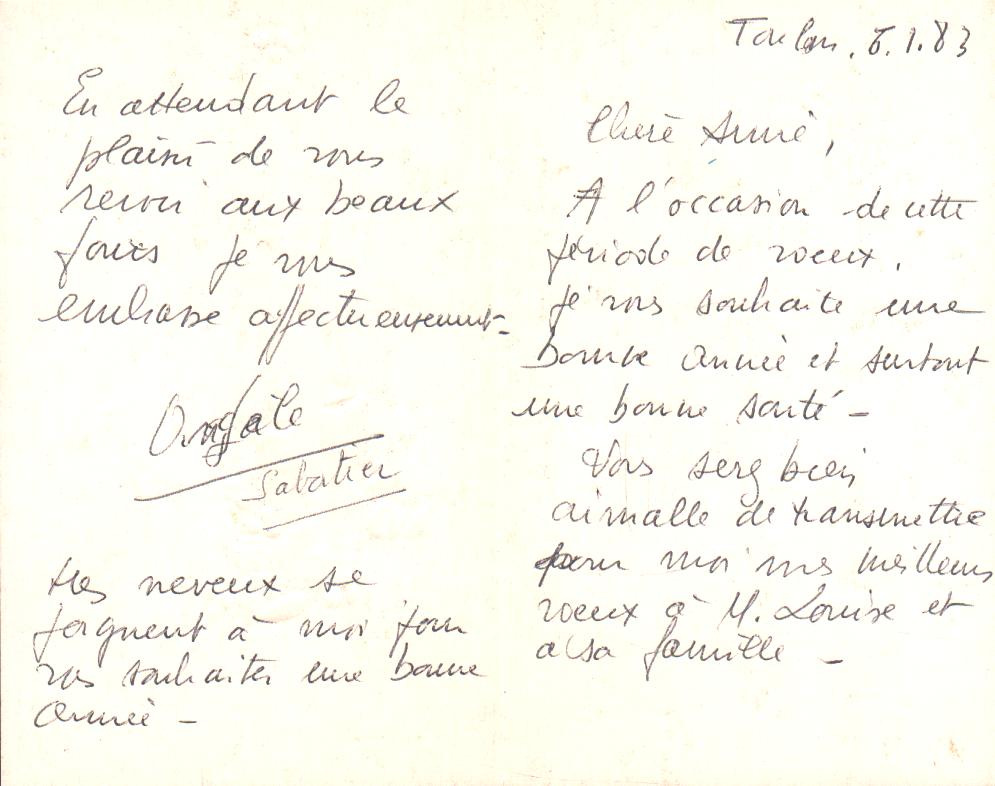 Toulon, 6.1.83
Chère Annie,
A l'occasion de cette
période de voeux,
je vous souhaite une
bonne année et surtout
une bonne santé -
Vous serez bien
aimable de transmettre
pour moi mes meilleurs
voeux à M. Louise et
à sa famille -
En attendant le
plaisir de vous
revoir aux beaux
jours je vous
embrasse affectueusement -
Sabatier
Mes neveux se
joignent à moi pour
vous souhaiter une bonne
année -